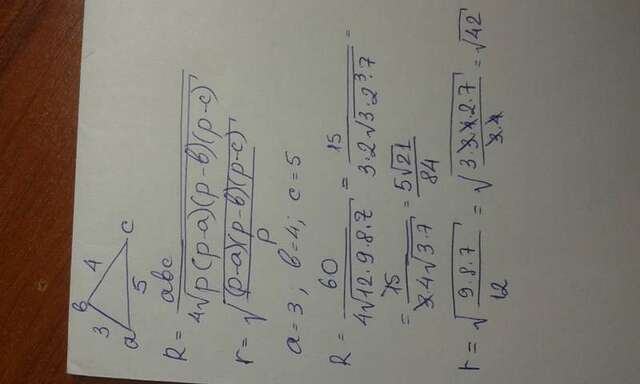 в
3 4
a 5 c
R = aвc / 4√p(p-a)(p-в)(p-c)
r = √(p-a)(p-в)(p-c) / p
a=3, в=4; c=5
R = 60 / 4√12·9·8·7 = 15 / 3·2√3·2³·7 =
= 15 / 3·4√3·7 = 5√21 / 84
r = √9·8·7 / 12 = √3·3·4·2·7 / 3·4 = √42